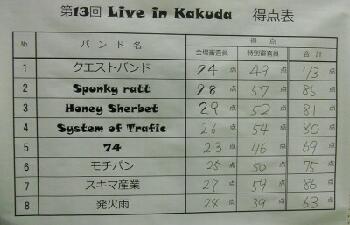 第13回 Live in Kakuda 得点表
№ バンド名 得点
会場審査員 特別審査員 合計
1 クエストバンド 24点 49点 73点
2 Spunky ratt 28点 57点 85点
3 Honey Sherbet 29点 52点 81点
4 System of Trafic 26点 54点 80点
5 74 23点 46点 69点
6 モチバン 25点 50点 75点
7 スナマ産業 27点 59点 86点
8 発火雨 24点 39点 63点